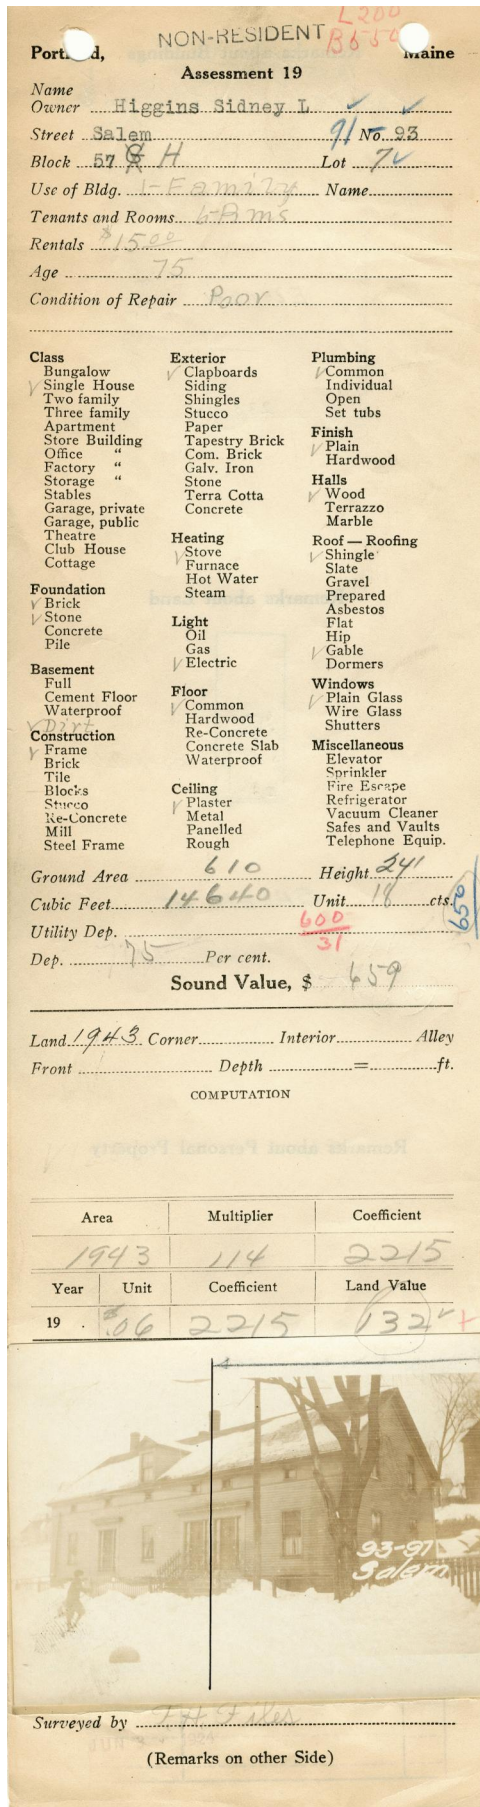 NON-RESIDENT L200
B650
Portland, Maine
Assessment 19
Name
Owner Higgins Sidney L
Street Salem 91- No. 93
Block 57 G H Lot 7
Use of Bldg. 1-Family Name
Tenants and Rooms 6 Rms
Rentals $15.00
Age 75
Condition of Repair Poor
Class
Bungalow
Single House
Two family
Three family
Apartment
Store Building
Office "
Factory "
Storage "
Stables
Garage, private
Garage, public
Theatre
Club House
Cottage
Foundation
Brick
Stone
Concrete
Pile
Basement
Full
Cement Floor
Waterproof
Dirt
Construction
Frame
Brick
Tile
Blocks
Stucco
Re-Concrete
Mill
Steel Frame
Exterior
Clapboards
Siding
Shingles
Stucco
Paper
Tapestry Brick
Com. Brick
Galv. Iron
Stone
Terra Cotta
Concrete
Heating
Stove
Furnace
Hot Water
Steam
Light
Oil
Gas
Electric
Floor
Common
Hardwood
Re-Concrete
Concrete Slab
Waterproof
Ceiling
Plaster
Metal
Panelled
Rough
Plumbing
Common
Individual
Open
Set tubs
Finish
Plain
Hardwood
Halls
Wood
Terrazzo
Marble
Roof — Roofing
Shingle
Slate
Gravel
Prepared
Asbestos
Flat
Hip
Gable
Dormers
Windows
Plain Glass
Wire Glass
Shutters
Miscellaneous
Elevator
Sprinkler
Fire Escape
Refrigerator
Vacuum Cleaner
Safes and Vaults
Telephone Equip.
Ground Area 610 Height 24'
Cubic Feet 14640 Unit 18 cts.
650
Utility Dep. 600
31
Dep. 75 Per cent.
Sound Value, $ 659
Land 1943 Corner Interior Alley
Front Depth = ft.
COMPUTATION
Area Multiplier Coefficient
1943 114 2215
Year Unit Coefficient Land Value
19 . $.06 2215 132
93-97
Salem
Surveyed by
(Remarks on other Side)